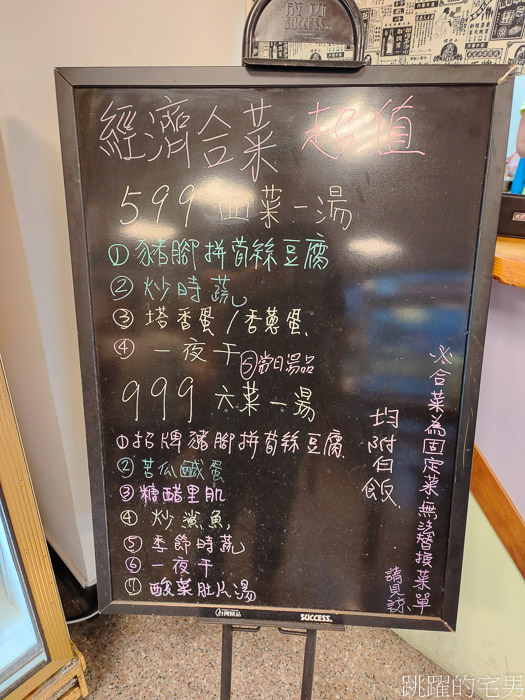 成功
經濟合菜 超值
599 四菜一湯
①豬腳拼筍絲豆腐
②炒時蔬
③塔香蛋/香蔥蛋
④一夜干 ⑤當日湯品
999 六菜一湯
①招牌豬腳拼筍絲豆腐
②苦瓜鹹蛋
③糖醋里肌
④炒鯊魚
⑤季節時蔬
⑥一夜干
⑦酸菜肚片湯
均附白飯
必合菜為固定菜無法替換菜單
請見諒
SUCCESS.
跳躍的宅男